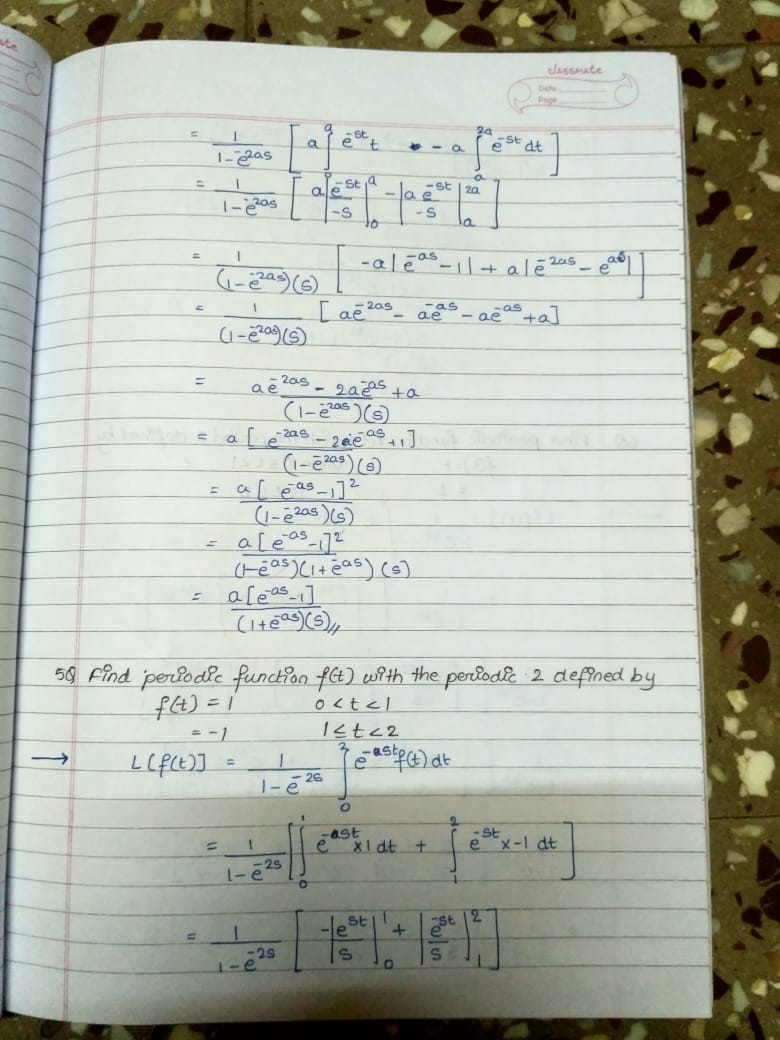 classmate
Date
Page
= 1/(1-e^-2as) [ a ∫_0^a e^-st t - a ∫_a^2a e^-st dt ]
= 1/(1-e^-2as) [ a|e^-st/-s|_0^a - |a e^-st/-s|_a^2a ]
= 1/((1-e^-2as)(s)) [ -a|e^-as -1| + a|e^-2as - e^as| ]
= 1/((1-e^-2as)(s)) [ ae^-2as - ae^-as - ae^-as + a]
= (ae^-2as - 2ae^-as + a)/((1-e^-2as)(s))
= a[e^-2as - 2e^-as +1]/((1-e^-2as)(s))
= a[e^-as -1]^2/((1-e^-2as)(s))
= a[e^-as -1]^2/((1-e^-as)(1+e^-as)(s))
= a[e^-as -1]/((1+e^-as)(s)) //
5Q Find periodic function f(t) with the periodic 2 defined by
f(t) = 1 0 < t < 1
= -1 1 ≤ t < 2
→ L[f(t)] = 1/(1-e^-2s) ∫_0^2 e^-st f(t) dt
= 1/(1-e^-2s) [ ∫_0^1 e^-st x1 dt + ∫_1^2 e^-st x-1 dt ]
= 1/(1-e^-2s) [ -|e^-st/s|_0^1 + |e^-st/s|_1^2 ]